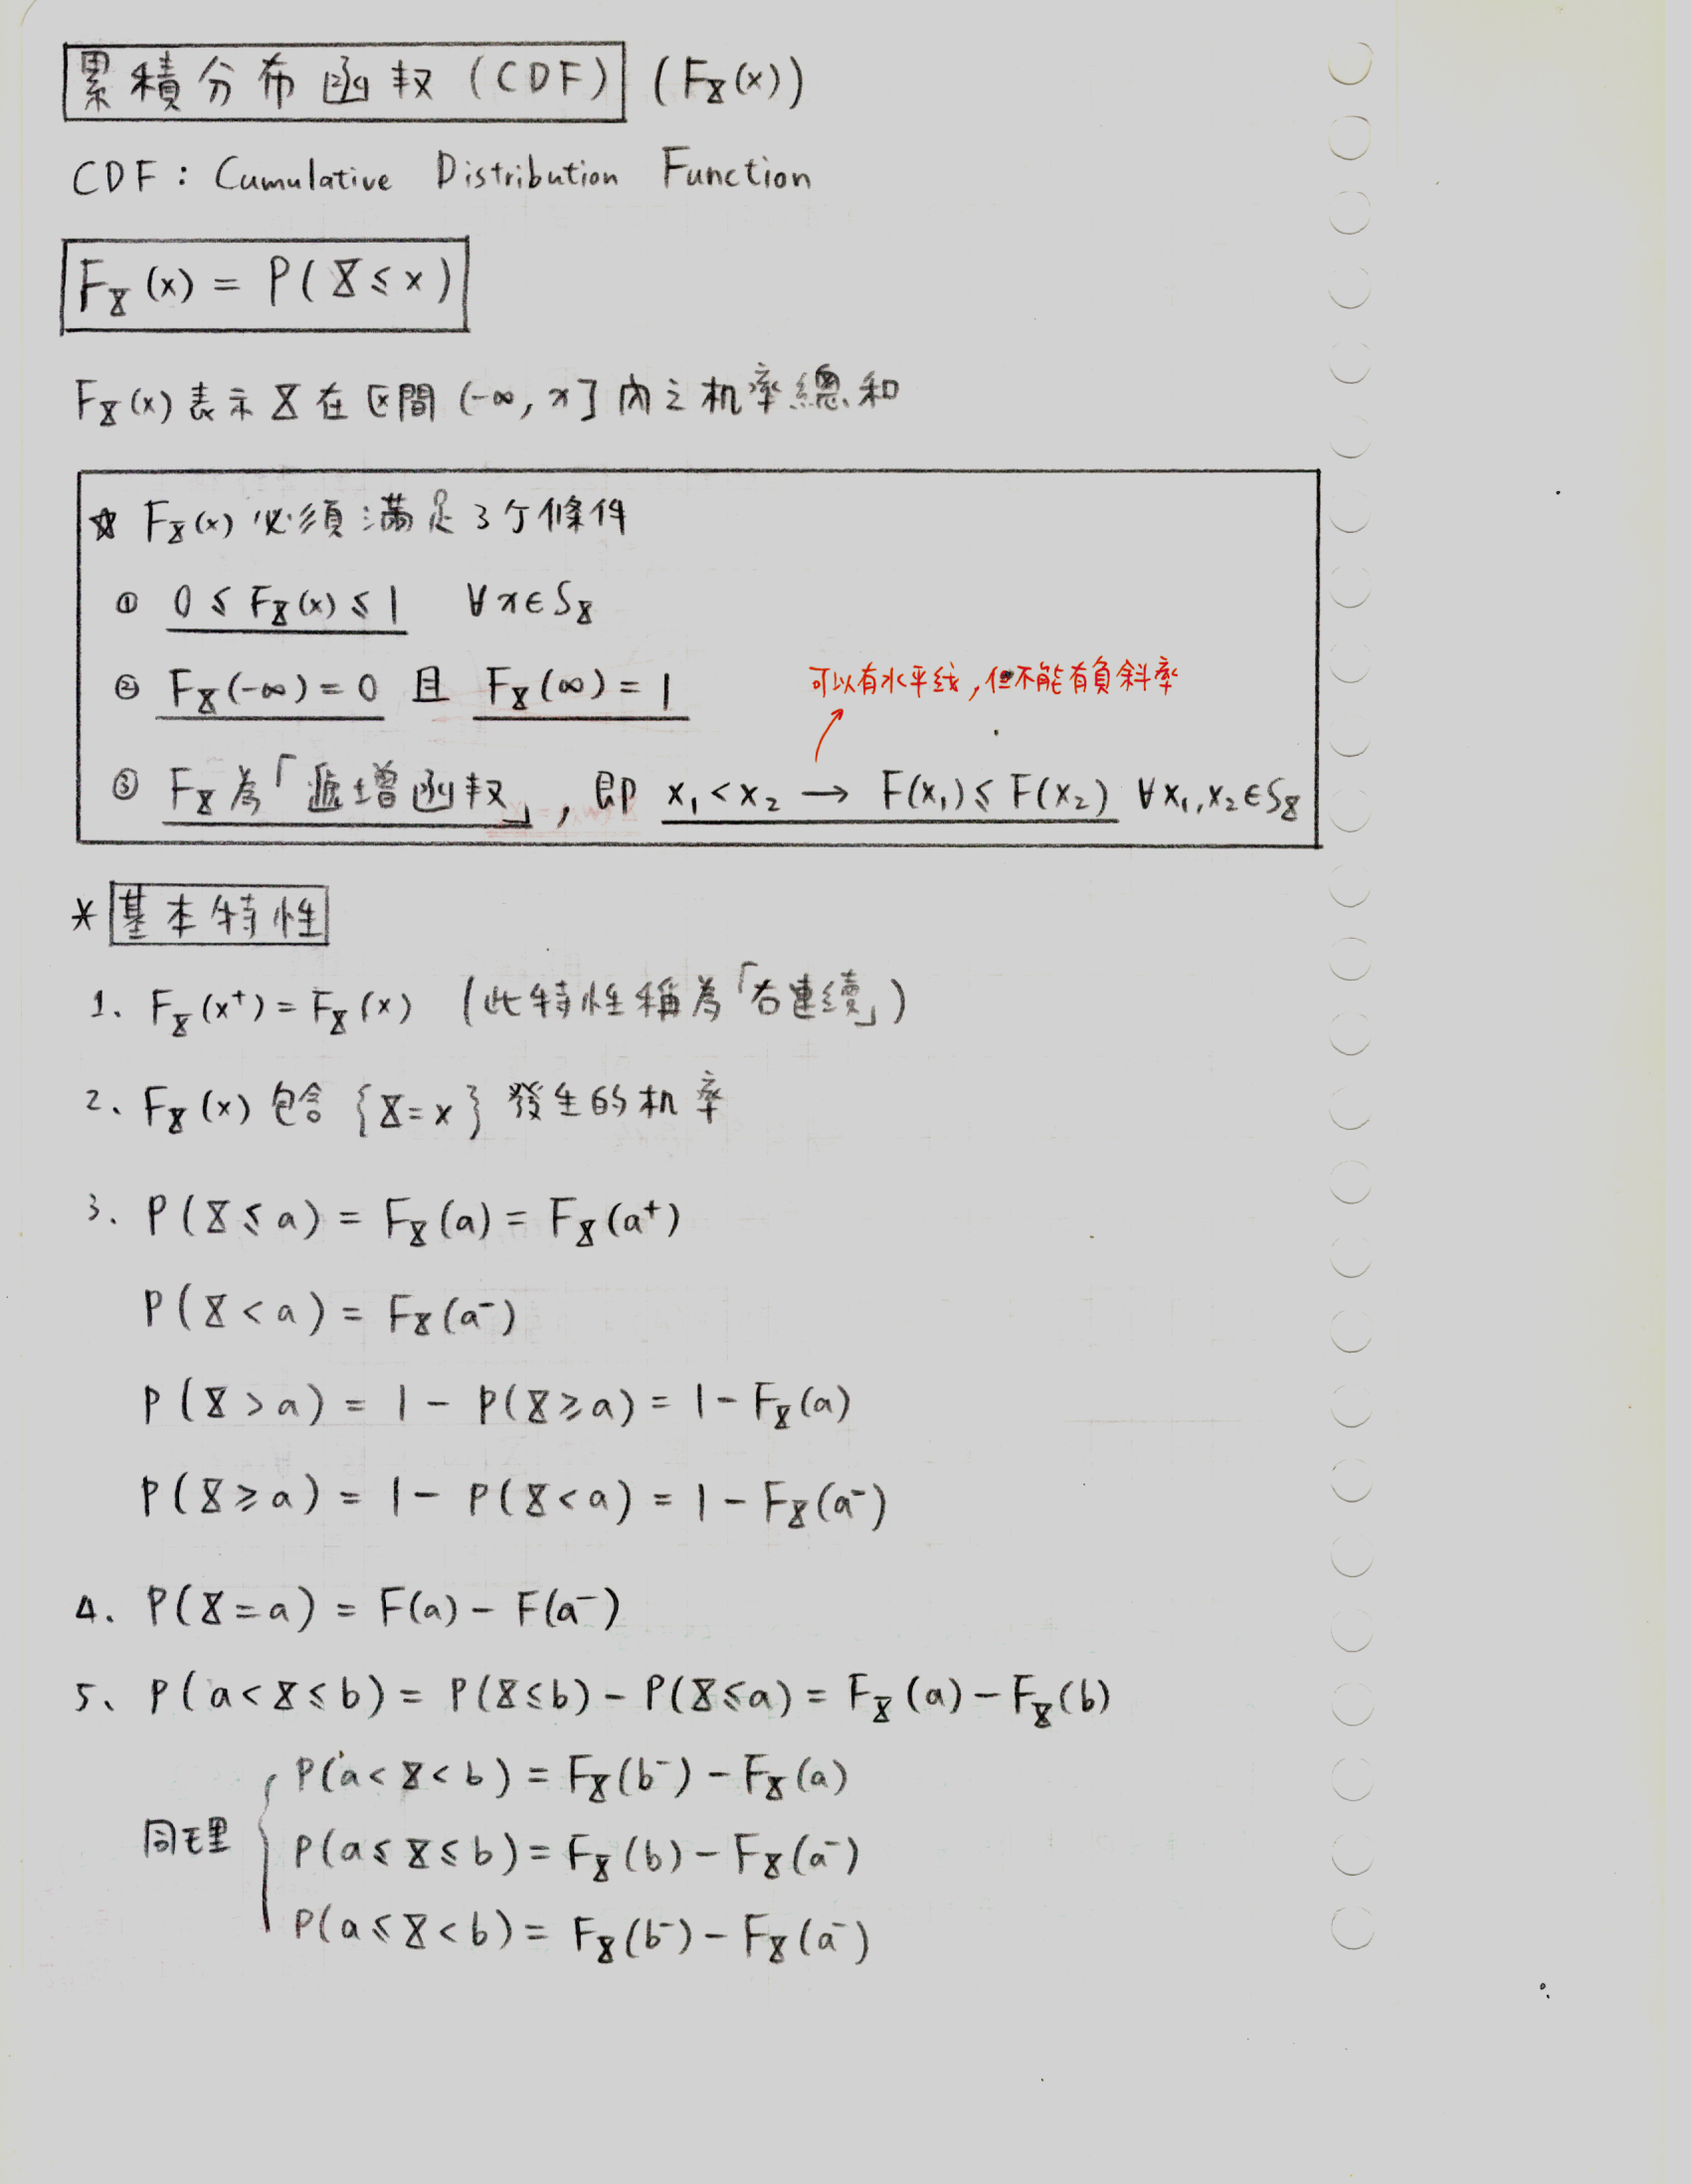 累積分布函数 (CDF) (F_X(x))
CDF : Cumulative Distribution Function
F_X(x) = P(X ≤ x)
F_X(x) 表示 X 在区間 (-∞, x] 內之机率總和
☆ F_X(x) 必須滿足 3 个條件
① 0 ≤ F_X(x) ≤ 1 ∀x∈S_X
② F_X(-∞) = 0 且 F_X(∞) = 1
可以有水平线,但不能有負斜率
③ F_X 為「遞增函数」, 即 x₁ < x₂ → F(x₁) ≤ F(x₂) ∀x₁,x₂∈S_X
* 基本特性
1、F_X(x⁺) = F_X(x) (此特性稱為「右連續」)
2、F_X(x) 包含 {X=x} 發生的机率
3、P(X ≤ a) = F_X(a) = F_X(a⁺)
P(X < a) = F_X(a⁻)
P(X > a) = 1 - P(X ≥ a) = 1 - F_X(a)
P(X ≥ a) = 1 - P(X < a) = 1 - F_X(a⁻)
4、P(X = a) = F(a) - F(a⁻)
5、P(a < X ≤ b) = P(X ≤ b) - P(X ≤ a) = F_X(a) - F_X(b)
P(a < X < b) = F_X(b⁻) - F_X(a)
同理 { P(a ≤ X ≤ b) = F_X(b) - F_X(a⁻)
P(a ≤ X < b) = F_X(b⁻) - F_X(a⁻)